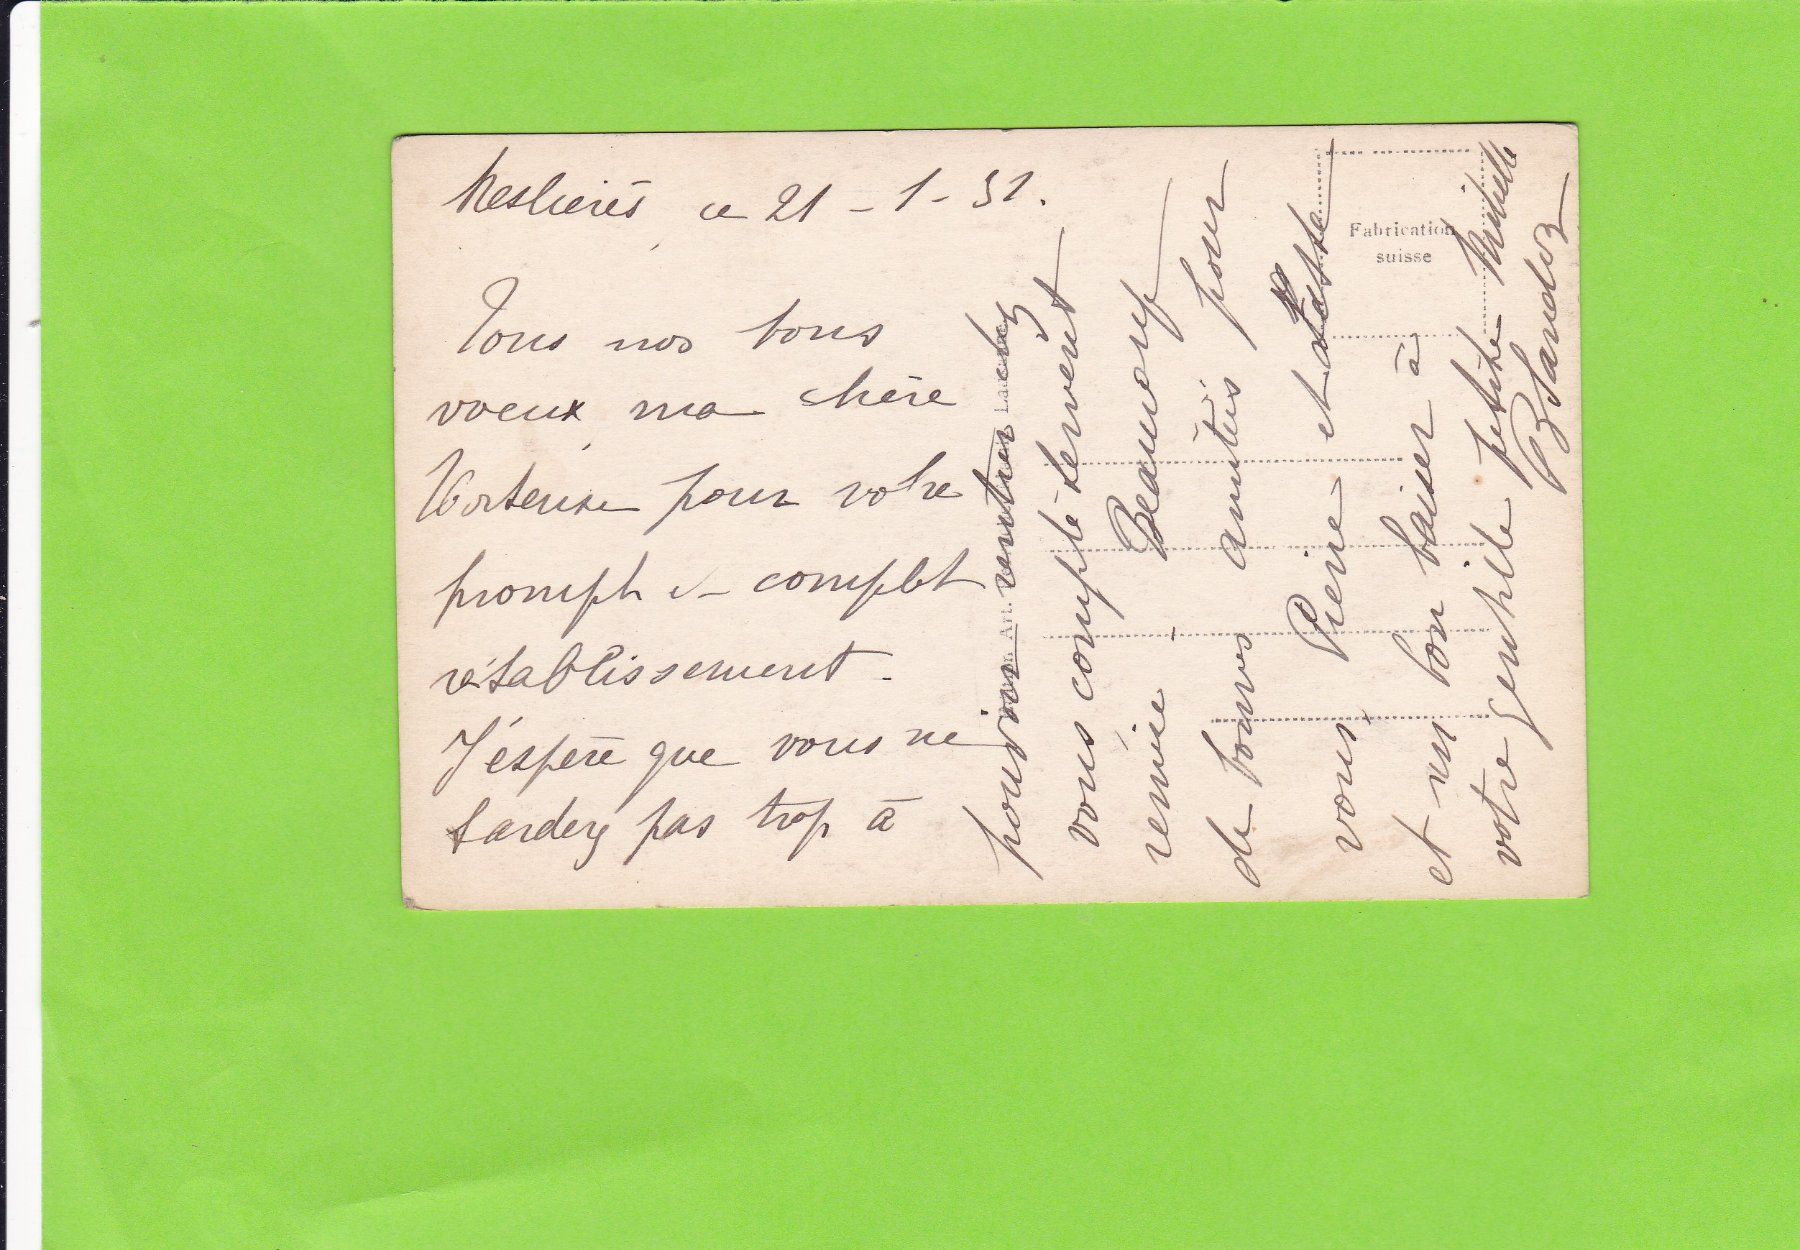 ce 21 - 1 - 31.
Tous nos bons
voeux ma chère
Hortense pour votre
prompt et complet
rétablissement.
J'éspère que vous ne
tardez pas trop à
pouvoir rentrer chez
vous complétement
remise. Beaucoup
de bonnes amitiés pour
vous, Pierre et
et un bon baiser à
votre gentille petite
Blanduz
Fabrication
suisse